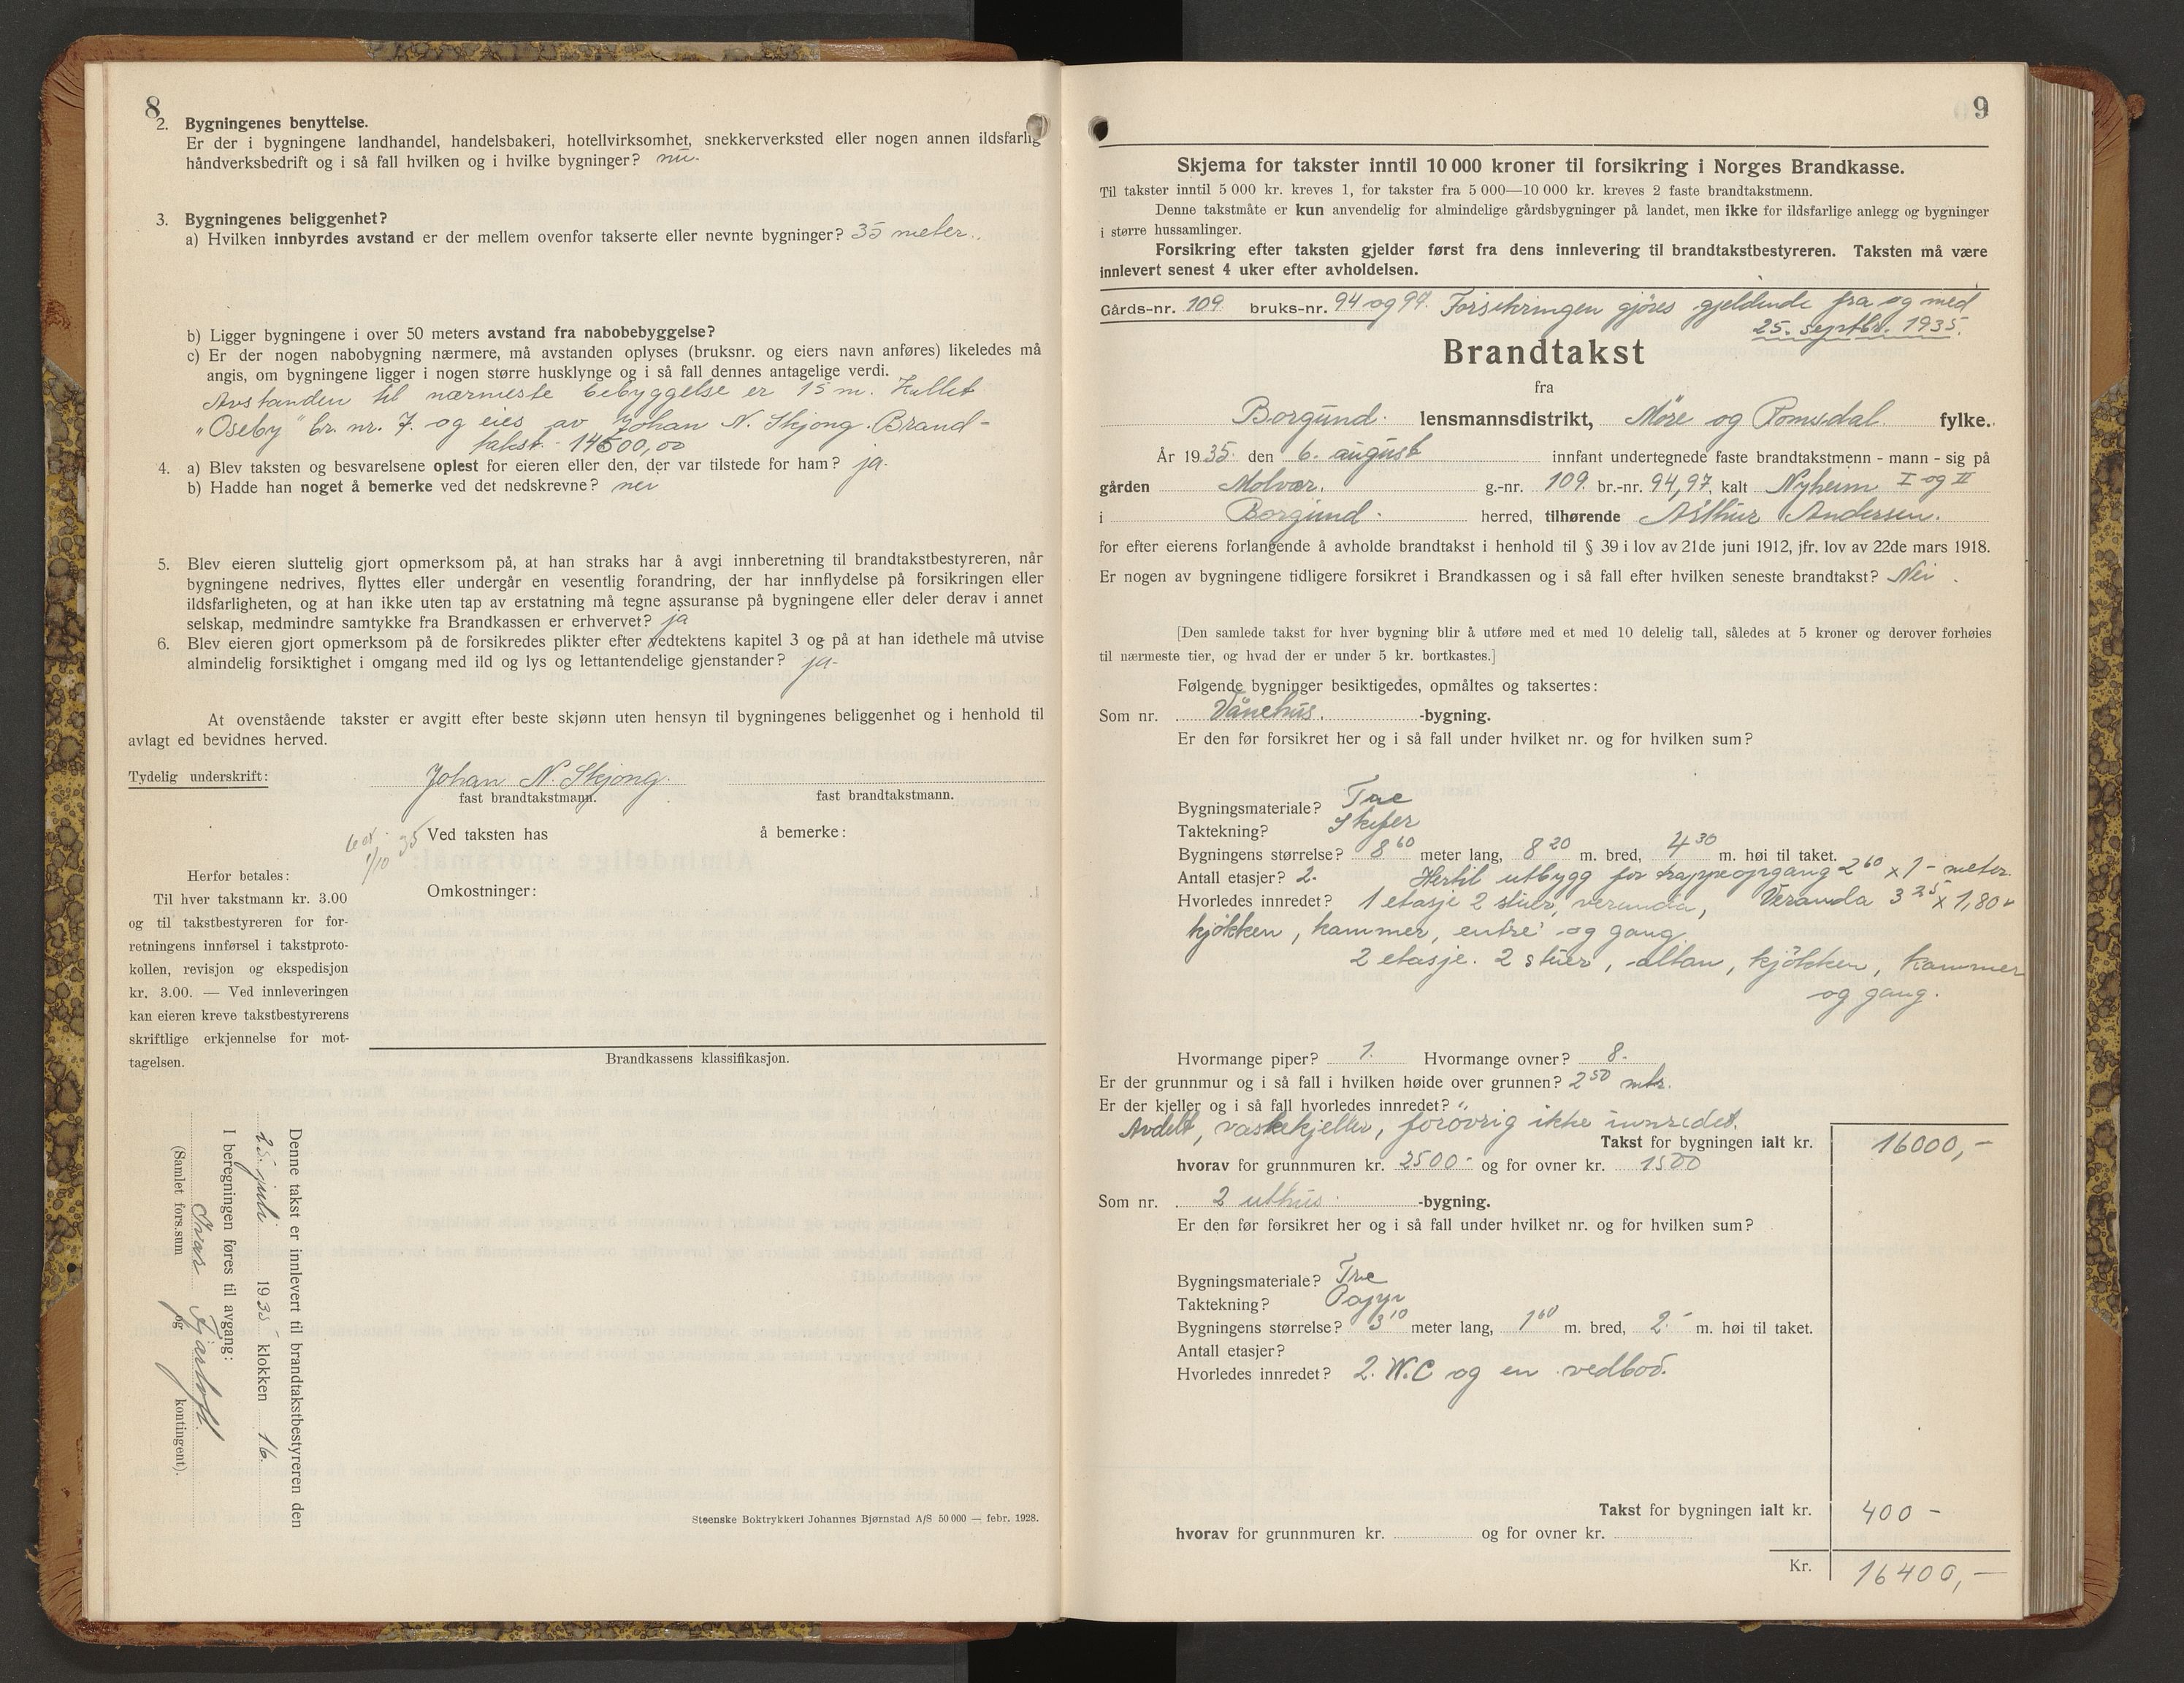 8
2. Bygningenes benyttelse.
Er der i bygningene landhandel, handelsbakeri, hotellvirksomhet, snekkerverksted eller nogen annen ildsfarlig
håndverksbedrift og i så fall hvilken og i hvilke bygninger?
3. Bygningenes beliggenhet?
a) Hvilken innbyrdes avstand er der mellem ovenfor takserte eller nevnte bygninger? 35 meter.
b) Ligger bygningene i over 50 meters avstand fra nabobebyggelse?
c) Er der nogen nabobygning nærmere, må avstanden oplyses (bruksnr. og eiers navn anføres) likeledes må
angis, om bygningene ligger i nogen større husklynge og i så fall dennes antagelige verdi.
Avstanden til nærmeste bebyggelse er 15 m. Kallet
"Oseby" br. nr. 7. og eies av Johan N. Skjong. Brand-
takst - 14500,00
4. a) Blev taksten og besvarelsene oplest for eieren eller den, der var tilstede for ham? ja.
b) Hadde han noget å bemerke ved det nedskrevne? nei
5. Blev eieren sluttelig gjort opmerksom på, at han straks har å avgi innberetning til brandtakstbestyreren, når
bygningene nedrives, flyttes eller undergår en vesentlig forandring, der har innflydelse på forsikringen eller
ildsfarligheten, og at han ikke uten tap av erstatning må tegne assuranse på bygningene eller deler derav i annet
selskap, medmindre samtykke fra Brandkassen er erhvervet? ja
6. Blev eieren gjort opmerksom på de forsikredes plikter efter vedtektens kapitel 3 og på at han idethele må utvise
almindelig forsiktighet i omgang med ild og lys og lettantendelige gjenstander? ja-
At ovenstående takster er avgitt efter beste skjønn uten hensyn til bygningenes beliggenhet og i henhold til
avlagt ed bevidnes herved.
Tydelig underskrift: Johan N. Skjong.
fast brandtakstmann. fast brandtakstmann.
1/10 35
Ved taksten has å bemerke:
Herfor betales:
Til hver takstmann kr. 3.00
og til takstbestyreren for for-
retningens innførsel i takstproto-
kollen, revisjon og ekspedisjon
kr. 3.00. — Ved innleveringen
kan eieren kreve takstbestyrerens
skriftlige erkjennelse for mot-
tagelsen.
Omkostninger:
Brandkassens klassifikasjon.
Denne takst er innlevert til brandtakstbestyreren den
25. juli 1935 klokken 16.
I beregningen føres til avgang:
Ivar
(Samlet fors.sum og kontingent).
Steenske Boktrykkeri Johannes Bjørnstad A/S 50 000 — febr. 1928.
9
Skjema for takster inntil 10 000 kroner til forsikring i Norges Brandkasse.
Til takster inntil 5 000 kr. kreves 1, for takster fra 5 000—10 000 kr. kreves 2 faste brandtakstmenn.
Denne takstmåte er kun anvendelig for almindelige gårdsbygninger på landet, men ikke for ildsfarlige anlegg og bygninger
i større hussamlinger.
Forsikring efter taksten gjelder først fra dens innlevering til brandtakstbestyreren. Taksten må være
innlevert senest 4 uker efter avholdelsen.
Gårds-nr. 109 bruks-nr. 94 og 97. Forsikringen gjøres gjeldende fra og med
25. septbr. 1935.
Brandtakst
fra
Borgund. lensmannsdistrikt, Møre og Romsdal. fylke.
År 1935 den 6. august innfant undertegnede faste brandtakstmenn - mann - sig på
gården Molvær. g.-nr. 109. br.-nr. 94,97, kalt Nyheim I og II
i Borgund. herred, tilhørende Arthur Andersen.
for efter eierens forlangende å avholde brandtakst i henhold til § 39 i lov av 21de juni 1912, jfr. lov av 22de mars 1918.
Er nogen av bygningene tidligere forsikret i Brandkassen og i så fall efter hvilken seneste brandtakst? Nei.
[Den samlede takst for hver bygning blir å utføre med et med 10 delelig tall, således at 5 kroner og derover forhøies
til nærmeste tier, og hvad der er under 5 kr. bortkastes.]
Følgende bygninger besiktigedes, opmåltes og taksertes:
Som nr. Vånehus. -bygning.
Er den før forsikret her og i så fall under hvilket nr. og for hvilken sum?
Bygningsmateriale? Træ
Taktekning? Skifer
Bygningens størrelse? 8 60 meter lang, 8 20 m. bred, 4 30 m. høi til taket.
Antall etasjer? 2. Hertil utbygg for trappeopgang 2 60 x 1 - meter.
Hvorledes innredet? 1 etasje 2 stuer, veranda, Veranda 3 25 x 1,80
kjøkken, kammer, entre og gang
2 etasje. 2 stuer, altan, kjøkken, kammer
og gang.
Hvormange piper? 1. Hvormange ovner? 8.
Er der grunnmur og i så fall i hvilken høide over grunnen? 2 50 mtr.
Er der kjeller og i så fall hvorledes innredet?
Avdelt, vaskekjeller, forøvrig ikke innredet.
Takst for bygningen ialt kr. 16000,-
hvorav for grunnmuren kr. 2500- og for ovner kr. 1500
Som nr. 2 uthus. -bygning.
Er den før forsikret her og i så fall under hvilket nr. og for hvilken sum?
Bygningsmateriale? Tre
Taktekning? Papp
Bygningens størrelse? 3 10 meter lang, 1 60 m. bred, 2.- m. høi til taket.
Antall etasjer?
Hvorledes innredet? 2. W.C og en vedbod.
Takst for bygningen ialt kr. 400 -
hvorav for grunnmuren kr. og for ovner kr.
Kr. 16400,-